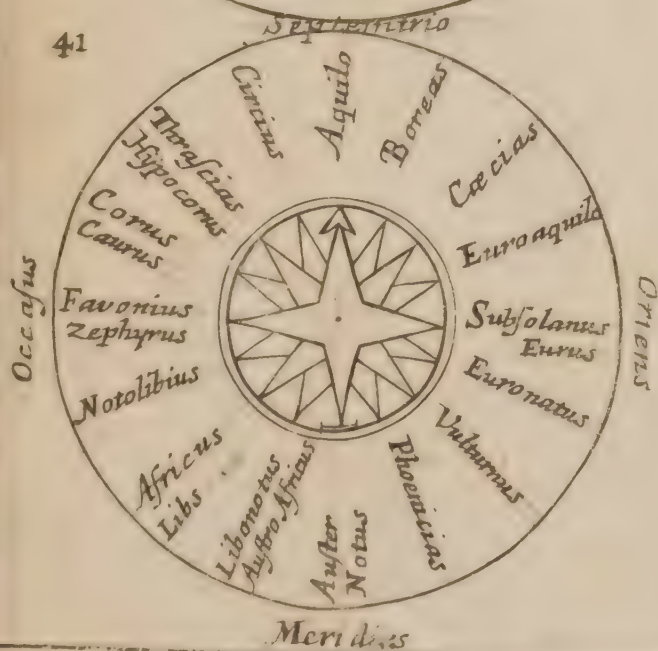 Septemtrio
41
Circius
Aquilo
Boreas
Cæcias
Euroaquilo
Subſolanus
Eurus
Euronatus
Vulturnus
Phoenicias
Auſter
Notus
Libonotus
Auſtro Africus
Africus
Libs
Notolibius
Favonius
Zephyrus
Corus
Caurus
Thraſcias
Hÿpocorus
Occaſus
Oriens
Meridies